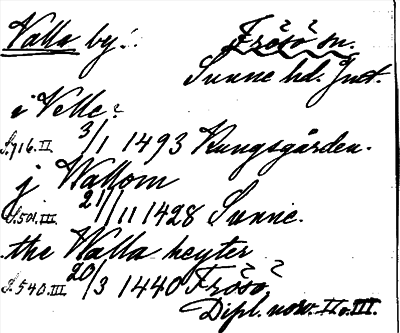 Valla by.
Frösö sn.
Sunne hd. Jmt.
i Velle?
S.716.II 3/1 1493 Kungsgården.
j Wallom
S.501.III. 21/11 1428 Sunne.
the Walla heyter
S.540.III 20/3 1440 Frösö
Dipl. norv. II o. III.